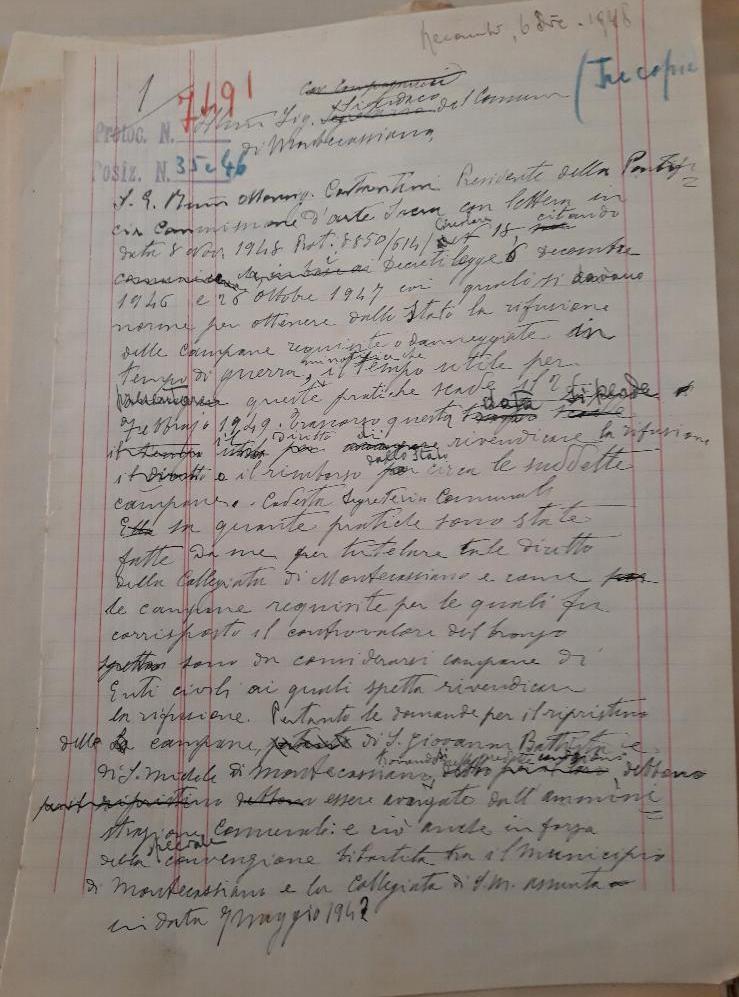 6 Dic. 1948
1
7491
(Tre copie
Cav. Compagnucci
Sindaco
Protoc. N.
Ill.mo Sig. Segretario del Comune
di Montecassiano
Posiz. N. 35e46
S. E. Mons. Costantini Presidente della Pontifi=
cia Commissione d'arte Sacra con lettera in
data 8 Nov. 1948 Prot. 8850/614/ 18, citando
comunica i Decreti legge 6 decembre
1946 e 26 Ottobre 1947 coi quali si davano
norme per ottenere dallo Stato la rifusione
delle campane requisite o danneggiate in
tempo di guerra, il tempo utile per
queste pratiche scade il 28
Febbraio 1949. Trascorso questa data si perde
il diritto di rivendicare la rifusione
il diritto o il rimborso dallo Stato circa le suddette
campane. Codesta Segreteria Comunale
Ella sa quante pratiche sono state
fatte da me per tutelare tale diritto
della Collegiata di Montecassiano e come
le campane requisite per le quali fu
corrisposto il controvalore del bronzo
sono da considerarsi campane di
Enti civili ai quali spetta rivendicare
la rifusione. Pertanto le domande per il ripristino
delle campane, di S. Giovanni Battista e
di S. Michele di Montecassiano, debbono
essere avanzate dall'ammini=
strazione Comunale e ciò anche in forza
della speciale convenzione bipartita tra il Municipio
di Montecassiano e la Collegiata di S. M. Assunta
in data 7 maggio 1947